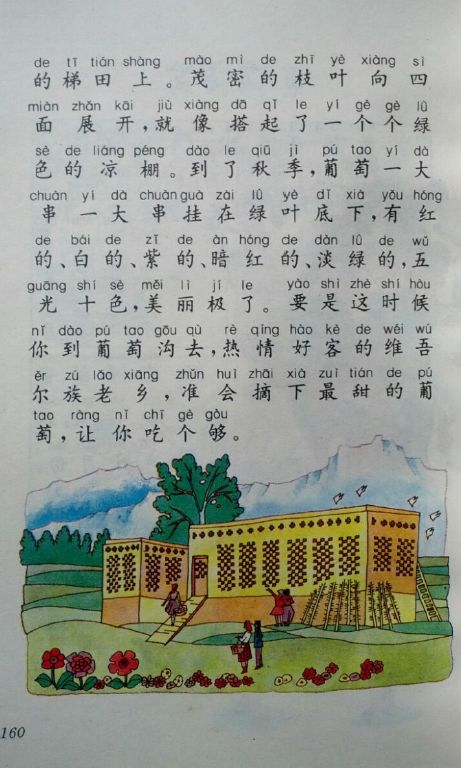 de tī tián shàng mào mì de zhī yè xiàng sì
的梯田上。茂密的枝叶向四
miàn zhǎn kāi jiù xiàng dā qǐ le yí gè gè lǜ
面展开,就像搭起了一个个绿
sè de liáng péng dào le qiū jì pú tao yí dà
色的凉棚。到了秋季,葡萄一大
chuàn yí dà chuàn guà zài lǜ yè dǐ xià yǒu hóng
串一大串挂在绿叶底下,有红
de bái de zǐ de àn hóng de dàn lǜ de wǔ
的、白的、紫的、暗红的、淡绿的,五
guāng shí sè měi lì jí le yào shì zhè shí hòu
光十色,美丽极了。要是这时候
nǐ dào pú tao gōu qù rè qíng hào kè de wéi wú
你到葡萄沟去,热情好客的维吾
ěr zú lǎo xiāng zhǔn huì zhāi xià zuì tián de pú
尔族老乡,准会摘下最甜的葡
tao ràng nǐ chī gè gòu
萄,让你吃个够。
160